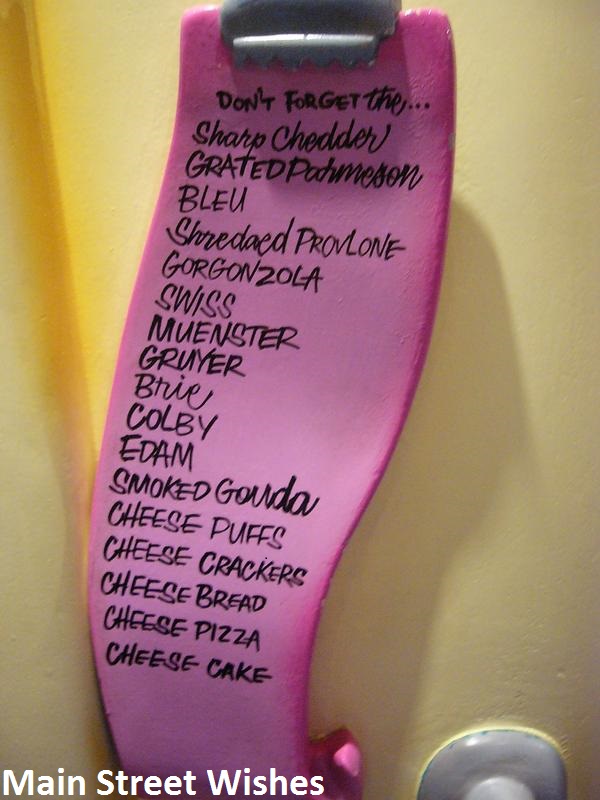 DON'T FORGET the...
Sharp Chedder
GRATED Parmeson
BLEU
Shredded PROVLONE
GORGONZOLA
SWISS
MUENSTER
GRUYER
Brie
COLBY
EDAM
SMOKED Gouda
CHEESE PUFFS
CHEESE CRACKERS
CHEESE BREAD
CHEESE PIZZA
CHEESE CAKE
Main Street Wishes